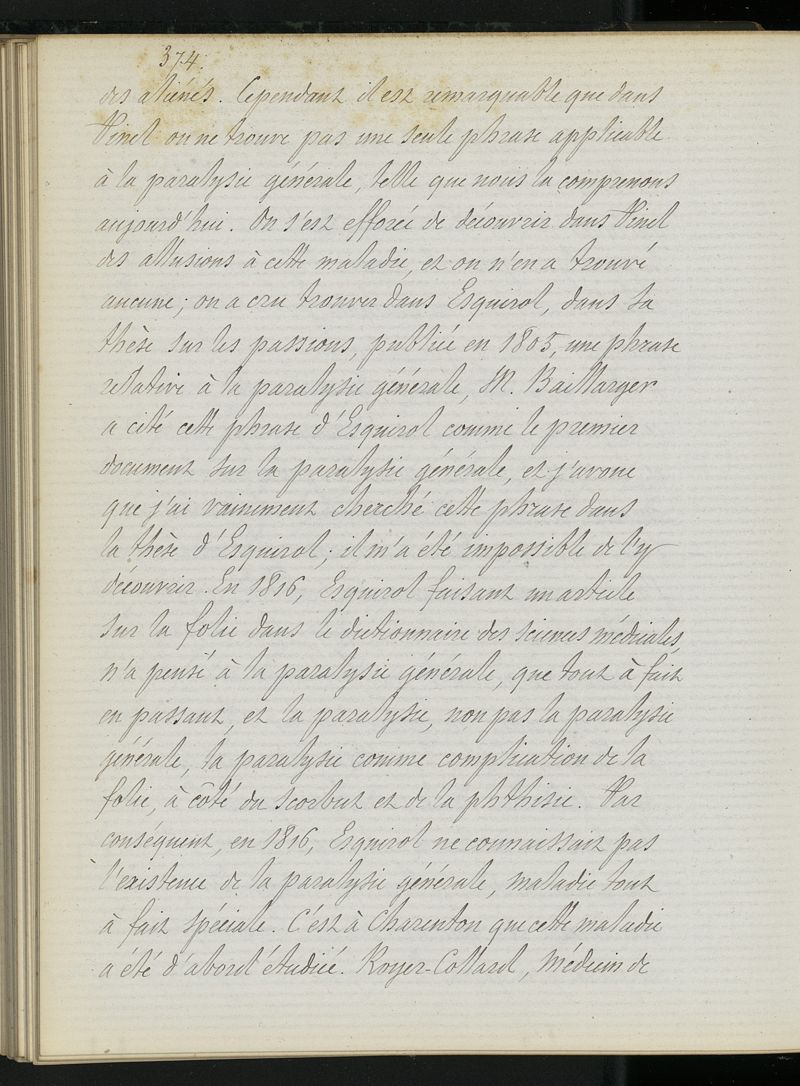 374.
des aliénés. Cependant il est remarquable que dans
Pinel on ne trouve pas une seule phrase applicable
à la paralysie générale, telle que nous la comprenons
aujourd'hui. On s'est efforcé de découvrir dans Pinel
des allusions à cette maladie, et on n'en a trouvé
aucune; on a cru trouver dans Esquirol, dans sa
thèse sur les passions, publiée en 1805, une phrase
relative à la paralysie générale, M. Baillarger
a cité cette phrase d'Esquirol comme le premier
document sur la paralysie générale, et j'avoue
que j'ai vainement cherché cette phrase dans
la thèse d'Esquirol; il m'a été impossible de l'y
découvrir. En 1816, Esquirol faisant un article
sur la folie dans le dictionnaire des sciences médicales,
n'a pensé à la paralysie générale, que tout à fait
en passant, et la paralysie, non pas la paralysie
générale, la paralysie comme complication de la
folie, à côté du scorbut et de la phthisie. Par
conséquent, en 1816, Esquirol ne connaissait pas
l'existence de la paralysie générale, maladie tout
à fait spéciale. C'est à Charenton que cette maladie
a été d'abord étudiée. Royer-Collard, Médecin de